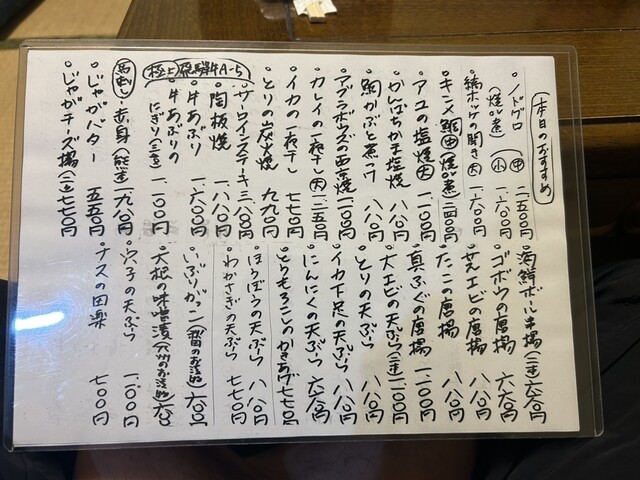 本日のおすすめ
・ノドグロ (焼or煮) ㊥ 二、五〇〇円
㊙小 一、六〇〇円
・縞ホッケの開き 大 一、六〇〇円
・キンメ鯛 ㊥ 焼or煮 二四〇〇円
・アユの塩焼 大 一、一〇〇円
・かんぱちかま塩焼 八八〇円
・鯛かぶと煮つけ 八八〇円
・アブラボウズの西京焼 一、一〇〇円
・カレイの一夜干し 大 一、二五〇円
・イカの一夜干し 七七〇円
・とりの炭火焼 九九〇円
極上飛騨牛A-5
・サーロインステーキ 三、八〇〇円
・陶板焼 一、八〇〇円
・牛あぶり 一、六〇〇円
・牛あぶりのにぎり(三ヶ) 一、一〇〇円
馬刺し・赤身(熊本) 一、九八〇円
・じゃがバター 五五〇円
・じゃがチーズ揚(三ヶ) 七七〇円
・海鮮ボール串揚(三ヶ) 六六〇円
・ゴボウの唐揚 六六〇円
・甘エビの唐揚 八八〇円
・たこの唐揚 八八〇円
・真ふぐの唐揚 一、一〇〇円
・大エビの天ぷら(三ヶ) 一、一〇〇円
・とりの天ぷら 八八〇円
・イカ下足の天ぷら 八八〇円
・にんにくの天ぷら 六六〇円
・とうもろこしのかきあげ 七七〇円
・ほうぼうの天ぷら 八八〇円
・わかさぎの天ぷら 七七〇円
・いぶりがっこ(秋田のお漬物) 六〇〇円
・大根の味噌漬(信州のお漬物) 六〇〇円
・穴子の天ぷら 一、一〇〇円
・ナスの田楽 七〇〇円